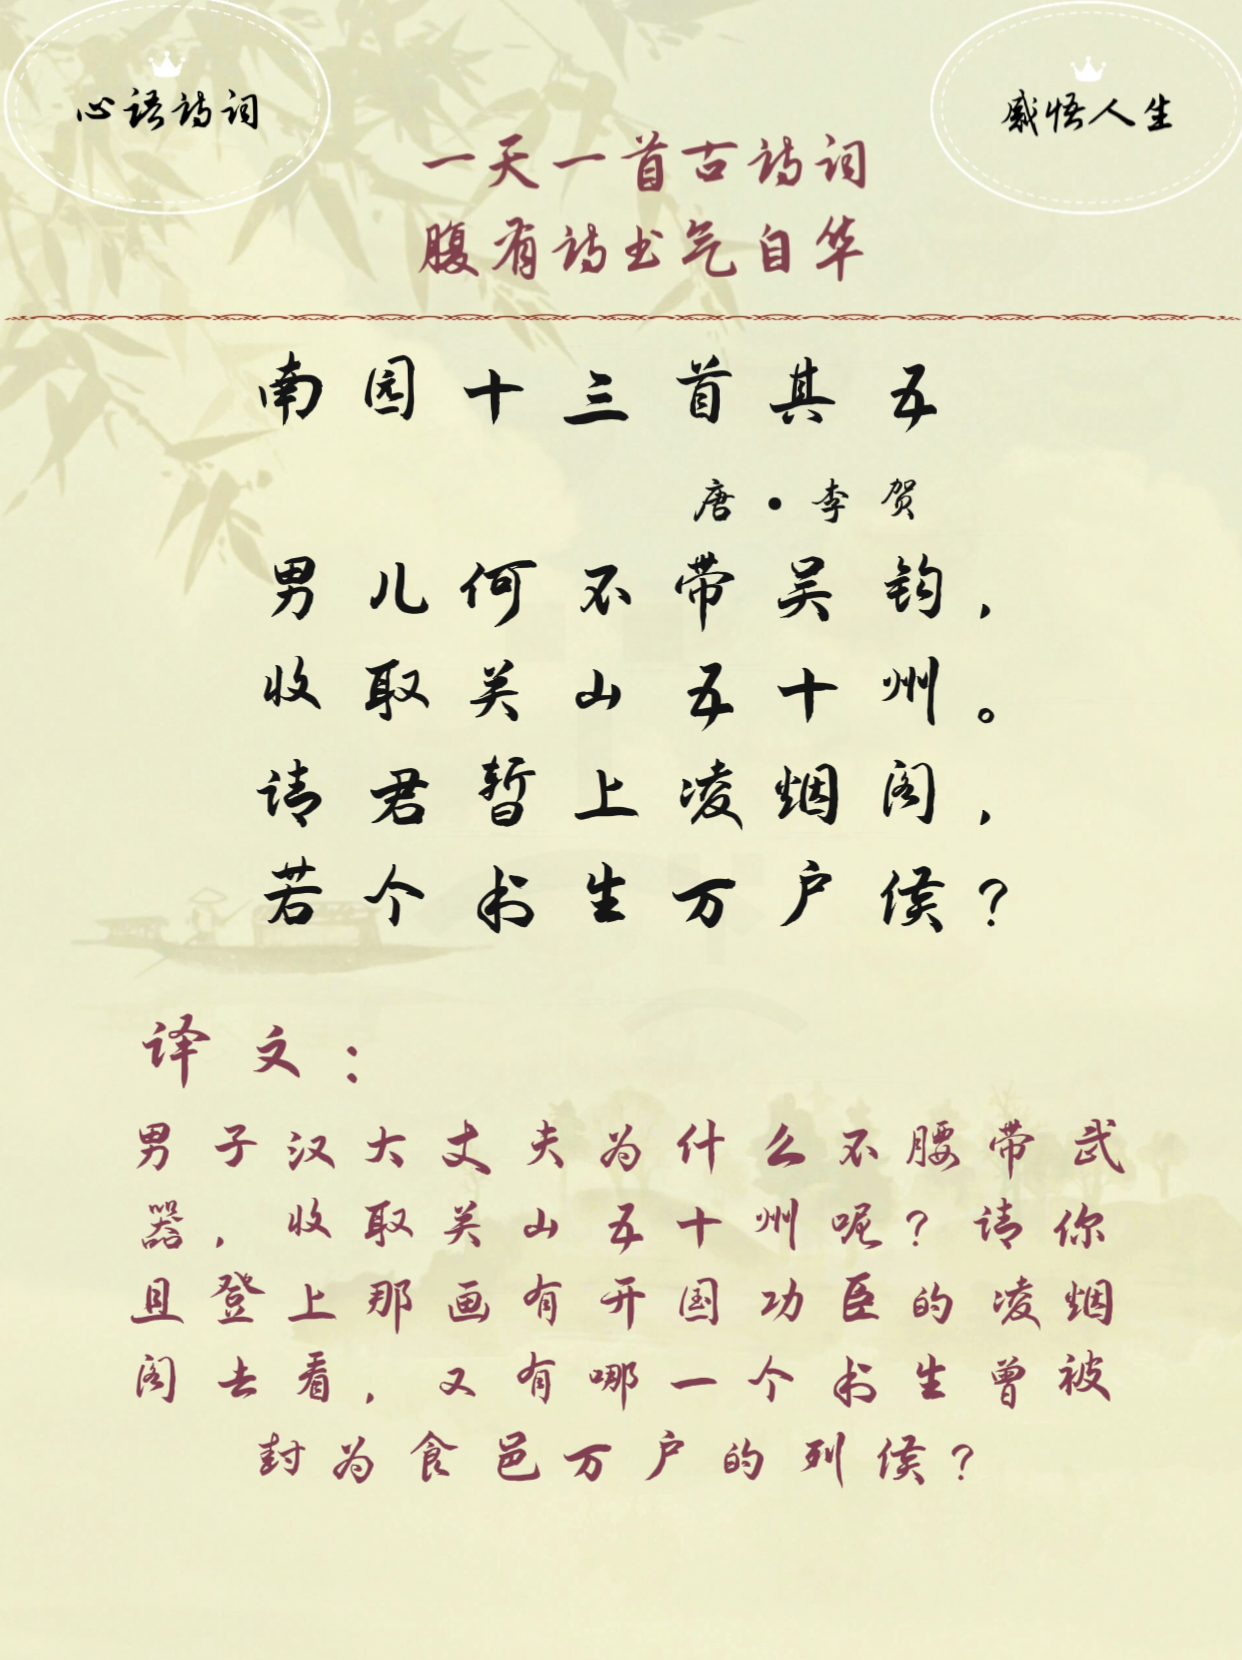 心语诗词
感悟人生
一天一首古诗词
腹有诗书气自华
南园十三首其五
唐·李贺
男儿何不带吴钩,
收取关山五十州。
请君暂上凌烟阁,
若个书生万户侯?
译文:
男子汉大丈夫为什么不腰带武
器,收取关山五十州呢?请你
且登上那画有开国功臣的凌烟
阁去看,又有哪一个书生曾被
封为食邑万户的列侯?